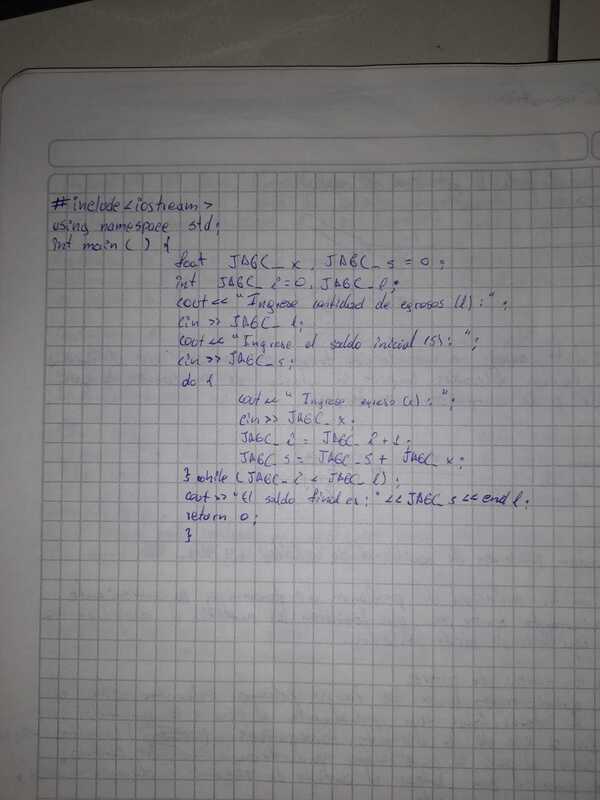 #include<iostream>
using namespace std;
int main( ) {
foat JAGC_x, JAGC_s=0;
int JAGC_i=0, JAGC_l;
cout<< "Ingrese cantidad de egresos (l):";
cin >> JAGC_l;
cout<< "Ingrese el saldo inicial (S): ";
cin >> JAGC_s;
do {
cout<< " Ingrese egreso (x): ";
cin>> JAGC_x;
JAGC_i = JAGC_i+1;
JAGC_s= JAGC_s+ JAGC_x;
} while (JAGC_i < JAGC_l);
cout>> "El saldo final es:" << JAGC_s << endl;
return 0;
}